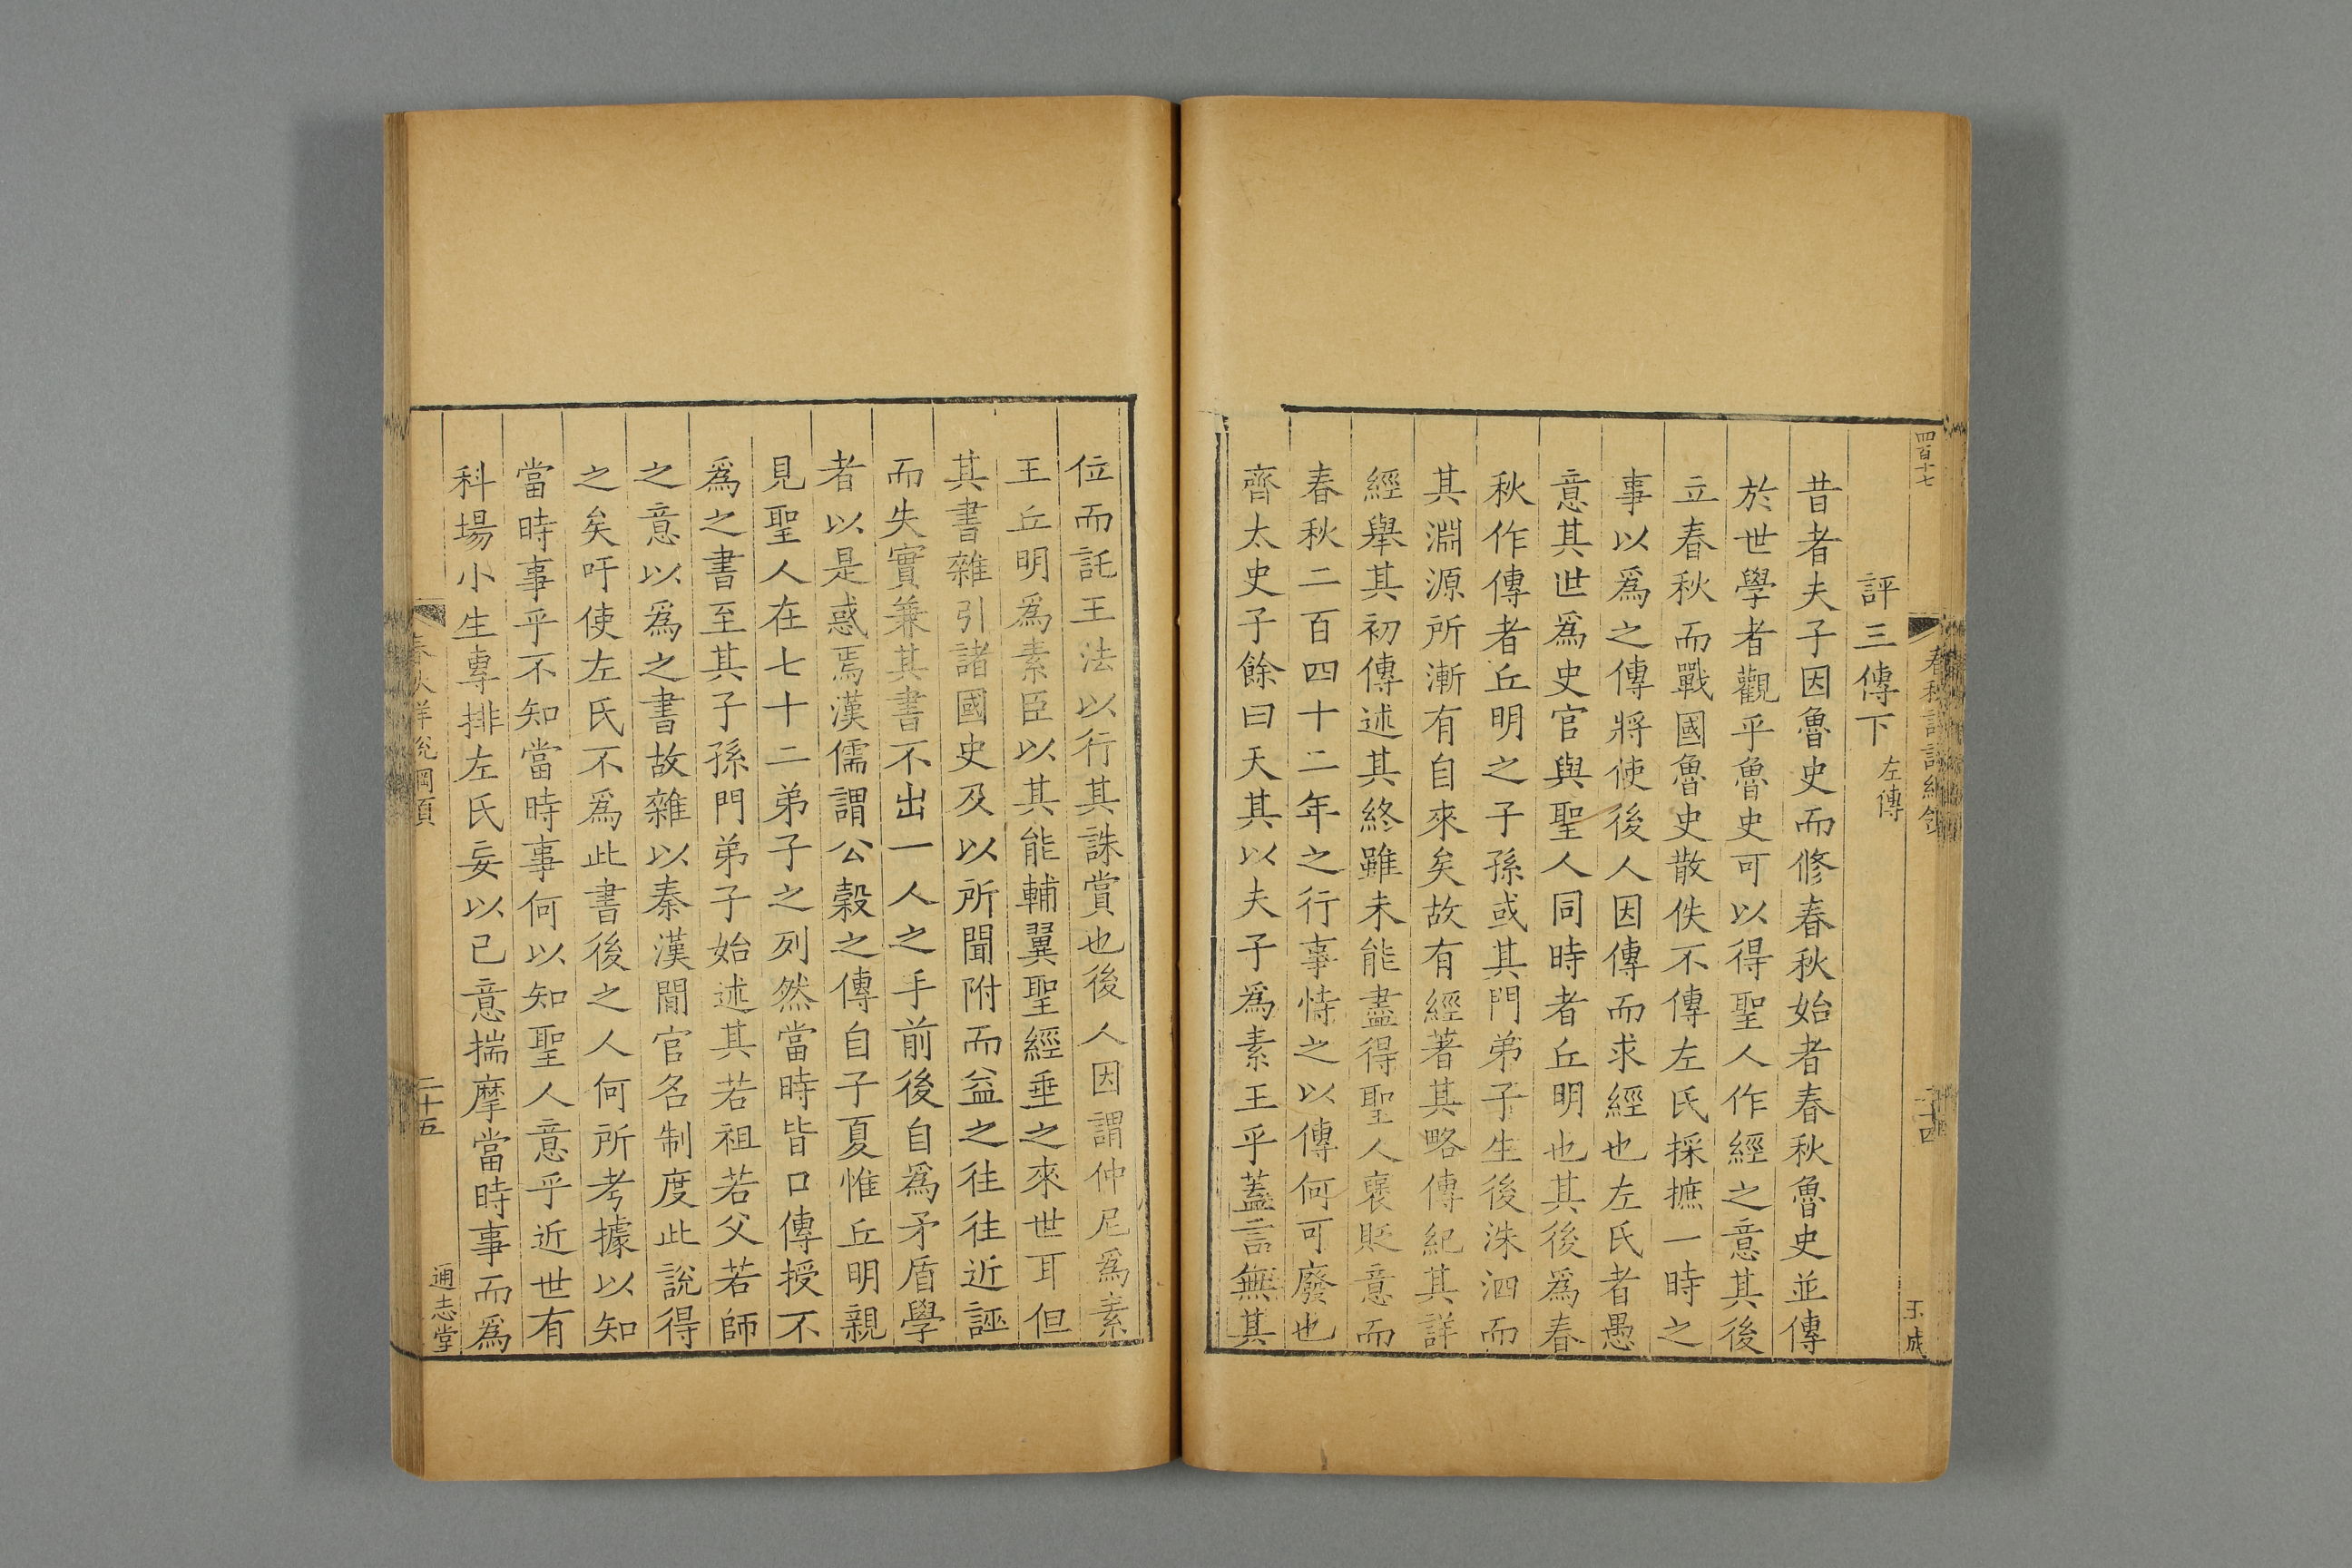 四百十七
春秋詳說綱領
二十四
玉成
評三傳下 左傳
昔者夫子因魯史而修春秋始者春秋魯史並傳
於世學者觀乎魯史可以得聖人作經之意其後
立春秋而戰國魯史散佚不傳左氏採摭一時之
事以爲之傳將使後人因傳而求經也左氏者愚
意其世爲史官與聖人同時者丘明也其後爲春
秋作傳者丘明之子孫或其門弟子生後洙泗而
其淵源所漸有自來矣故有經著其略傳紀其詳
經舉其初傳述其終雖未能盡得聖人襃貶意而
春秋二百四十二年之行事恃之以傳何可廢也
齊太史子餘曰天其以夫子爲素王乎蓋言無其
位而託王法以行其誅賞也後人因謂仲尼爲素
王丘明爲素臣以其能輔翼聖經垂之來世耳但
其書雜引諸國史及以所聞附而益之往往近誣
而失實兼其書不出一人之手前後自爲矛盾學
者以是惑焉漢儒謂公穀之傳自子夏惟丘明親
見聖人在七十二弟子之列然當時皆口傳授不
爲之書至其子孫門弟子始述其若祖若父若師
之意以爲之書故雜以秦漢閒官名制度此說得
之矣吁使左氏不爲此書後之人何所考據以知
當時事乎不知當時事何以知聖人意乎近世有
科場小生專排左氏妄以己意揣摩當時事而爲
春秋詳說綱領
二十五
通志堂